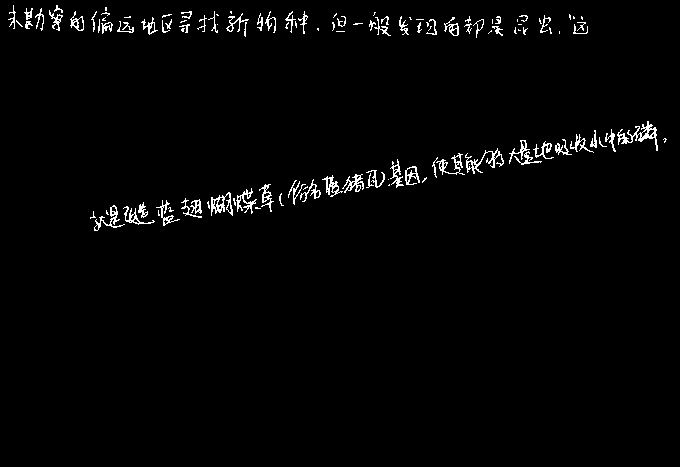 未勘察的偏远地区寻找新物种,但一般发现的都是昆虫,“这
就是改造蓝翅蝴蝶草(俗名蓝猪耳)基因,使其能够大量地吸收水中的磷,